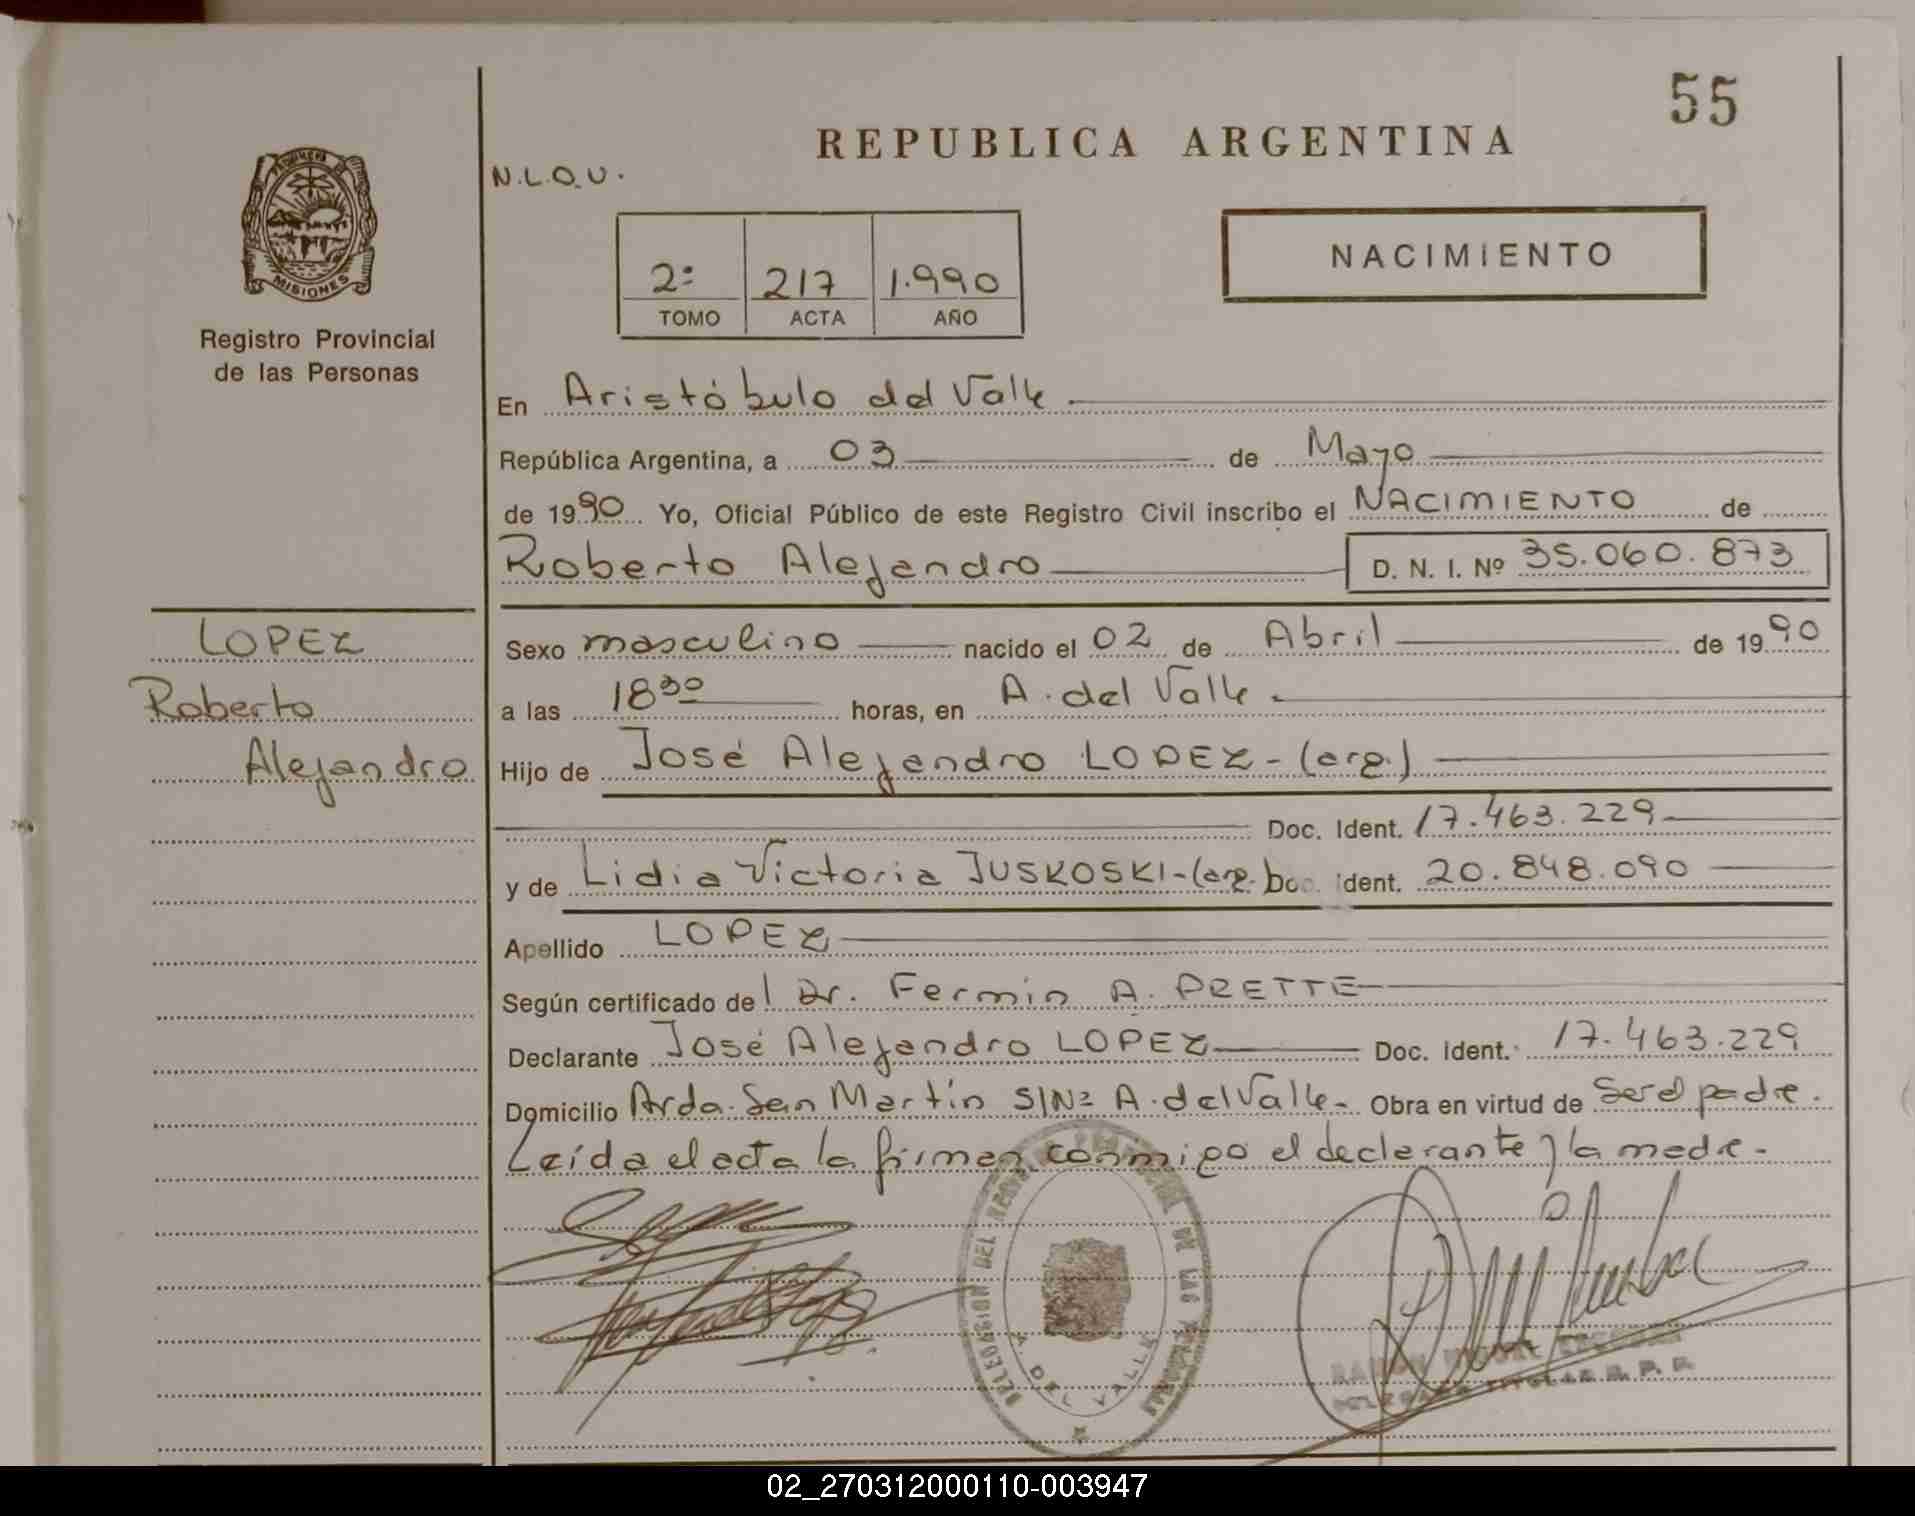 55
REPUBLICA ARGENTINA
N.L.O.U.
PROVINCIA
MISIONES
Registro Provincial
de las Personas
NACIMIENTO
2º 217 1.990
TOMO ACTA AÑO
En Aristóbulo del Valle
República Argentina, a 03 de Mayo
de 1990 Yo, Oficial Público de este Registro Civil inscribo el NACIMIENTO de
Roberto Alejandro D. N. I. Nº 35.060.873
LOPEZ
Roberto
Alejandro
Sexo masculino nacido el 02 de Abril de 1990
a las 18 30 horas, en A. del Valle.
Hijo de José Alejandro LOPEZ - (arg.)
Doc. Ident. 17.463.229
y de Lidia Victoria JUSKOSKI - (arg. Doc. Ident. 20.848.090
Apellido LOPEZ
Según certificado de l Dr. Fermin A. PRETTE
Declarante José Alejandro LOPEZ Doc. Ident. 17.463.229
Domicilio Avda. San Martín S/Nº A. del Valle - Obra en virtud de Ser el padre.
Leída el acta la firman conmigo el declarante y la madre -
DELEGACION DEL REGISTRO PROVINCIAL DE LAS PERSONAS
A. DEL VALLE
RAMON MIGUEL
DELEGADO TITULAR R. P. P.
02_270312000110-003947